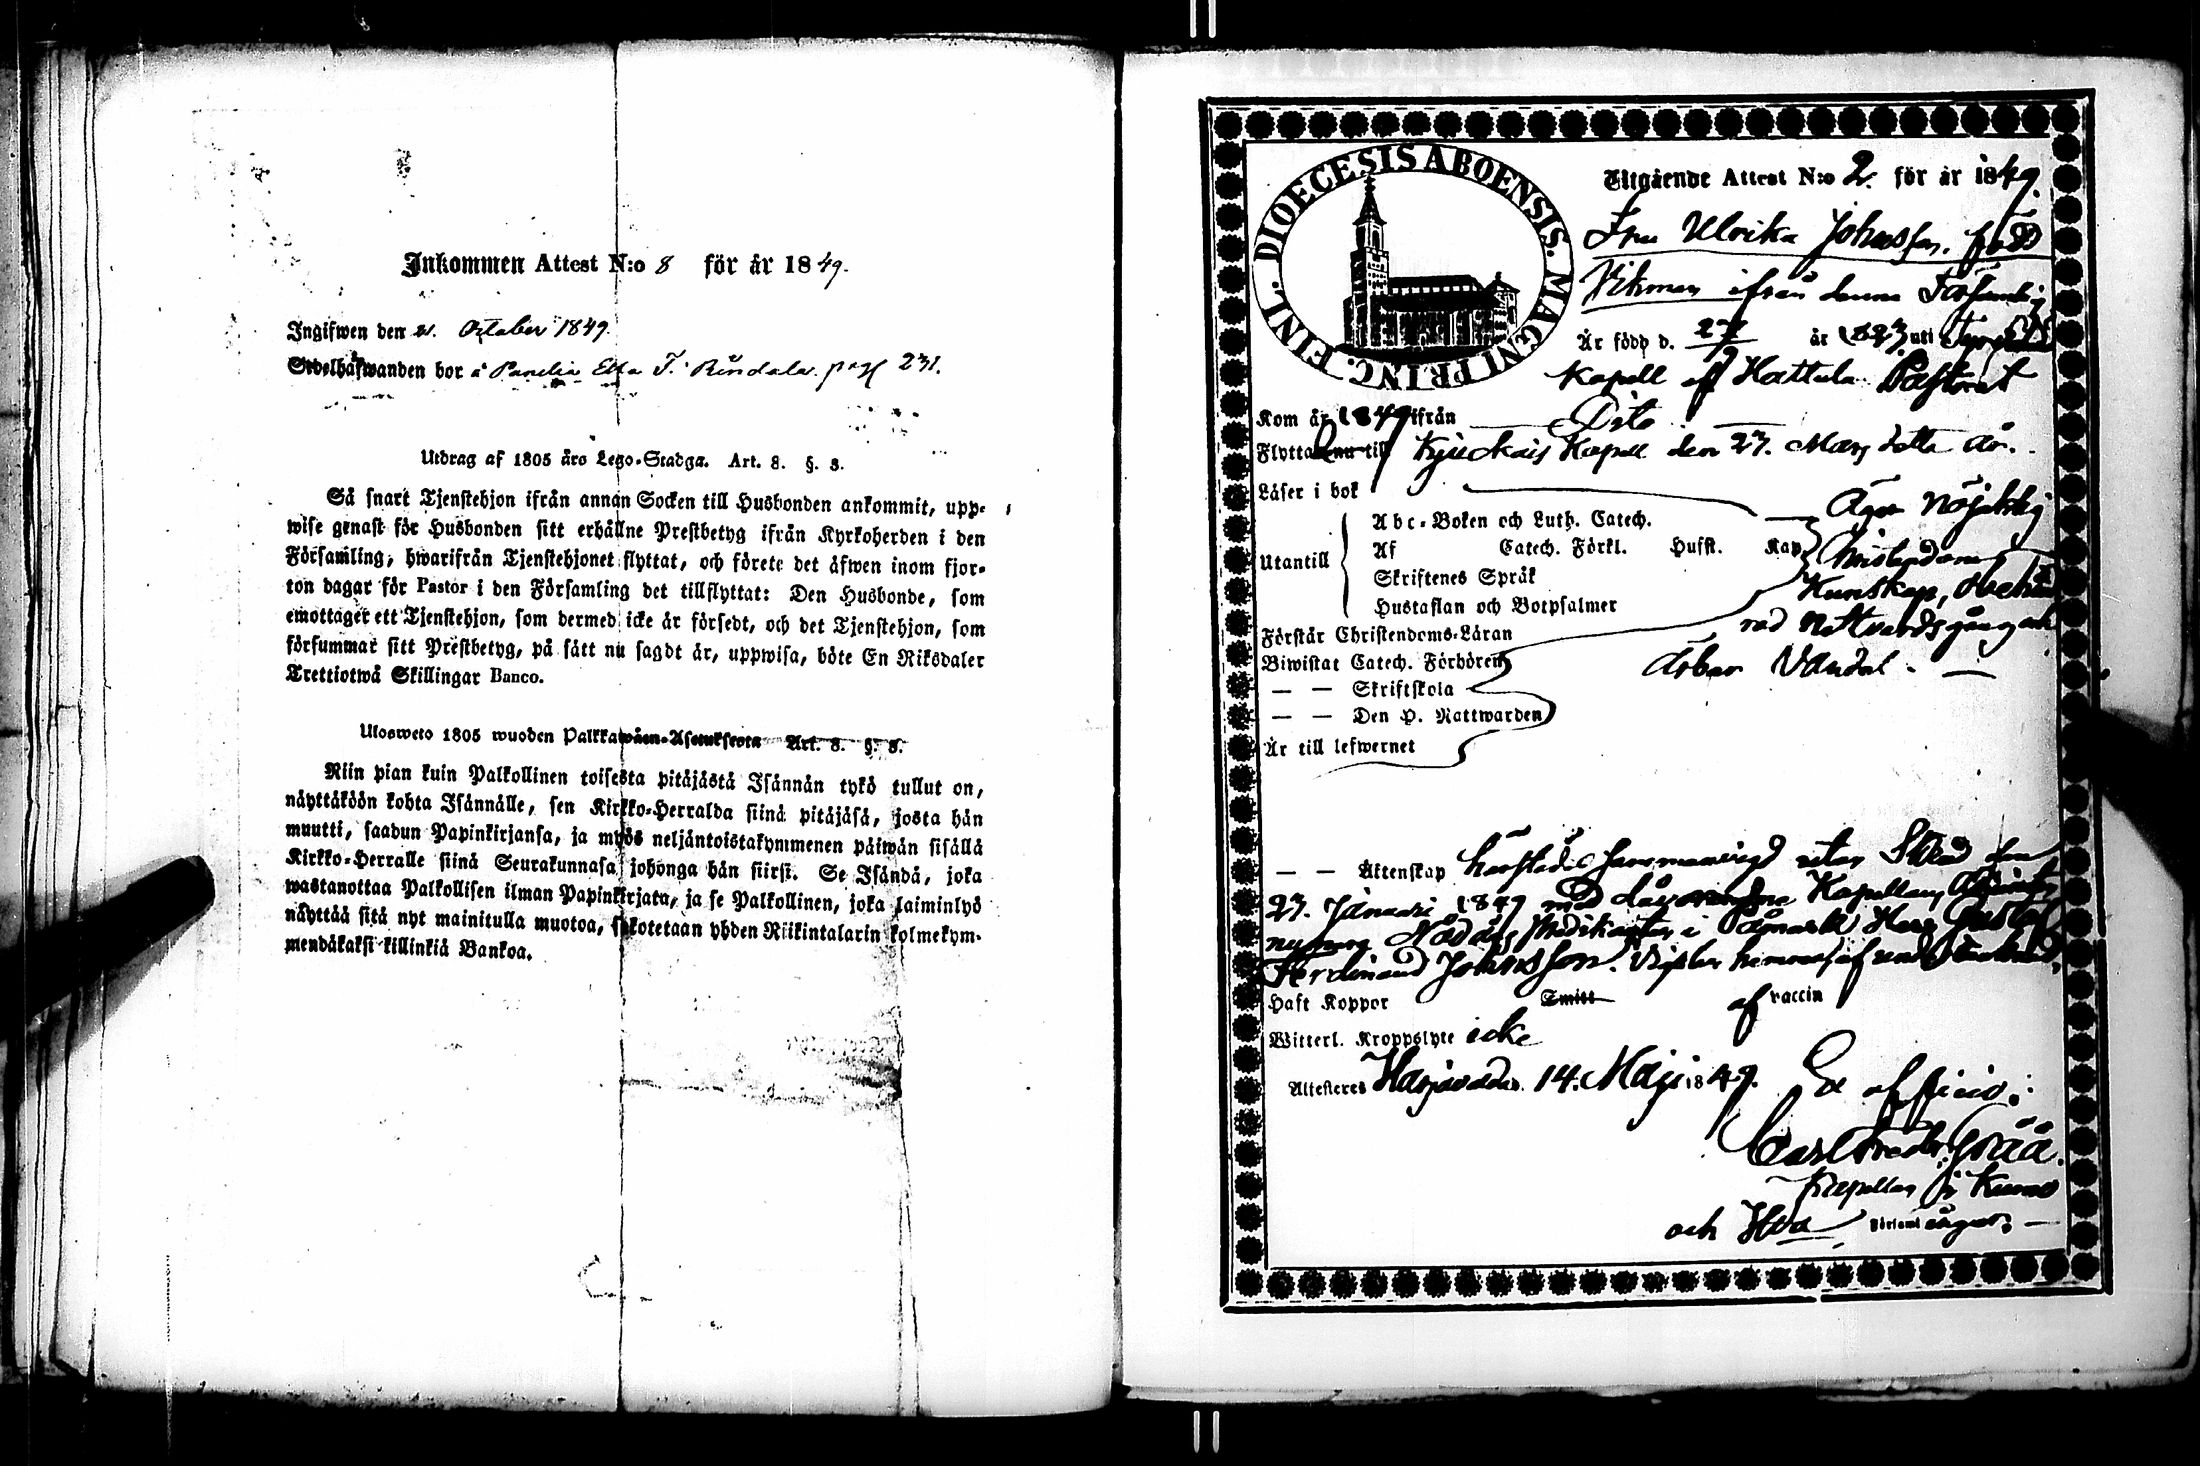 Inkommen Attest N:o 8 för år 1849.
Ingifwen den 21. October 1849.
Sedelhafwanden bor å Panelia Pag 231.
Utdrag af 1805 års Lego-Stadga. Art. 8. §. 3.
Så snart Tjenstehjon ifrån annan Socken till Husbonden ankommit, upp-
wise genast för Husbonden sitt erhållne Prestbetyg ifrån Kyrkoherden i den
Församling, hwarifrån Tjenstehjonet flyttat, och förete det äfwen inom fjor-
ton dagar för Pastor i den Församling det tillflyttat: Den Husbonde, som
emottager ett Tjenstehjon, som dermed icke är försedt, och det Tjenstehjon, som
försummar sitt Prestbetyg, på sätt nu sagdt är, uppwisa, böte En Riksdaler
Trettiotwå Skillingar Banco.
Ulosweto 1805 wuoden Palkkawäen-Asetuksesta Art. 8. §. 3.
Niin pian kuin Palkollinen toisesta pitäjästä Isännän tykö tullut on,
näyttäköön kohta Isännälle, sen Kirkko-Herralda siinä pitäjäsä, josta hän
muutti, saadun Papinkirjansa, ja myös neljäntoistakymmenen päiwän sisällä
Kirkko-Herralle siinä Seurakunnasa johonga hän siirsi. Se Isändä, joka
wastanottaa Palkollisen ilman Papinkirjata, ja se Palkollinen, joka laiminlyö
näyttää sitä nyt mainitulla muotoa, sakotetaan yhden Riikintalarin kolmekym-
mendäkaksi killinkiä Bankoa.
DIOECESIS ABOENSIS. MAGNI PRINC. FINL.
Utgående Attest N:o 2. för år 1849.
Fru Ulrika Johnsson, född
Vikman ifrån denna Församling
Är född d. 27/9 år 1823 uti
Kapell af Hattula Pastorat
Kom år 1849 ifrån Dito
Flyttade nu till Kjuckais Kapell den 27. Mars detta år.
Läser i bok Äger nöjaktig
Abc-Boken och Luth. Catech.
Utantill Af Catech. Förkl. Husst. Kap Christendoms
Skriftenes Språk Kunskap,
Hustaflan och Botpsalmer
Förstår Christendoms-Läran nattvardsgång och
Biwistat Catech. Förhören ärbar Vandel.
— — Skriftskola
— — Den H. Nattwarden
Är till lefwernet
— — Äktenskap härstädes sammanvigd utan den
27. Januari 1849 med dåvarande Kapellans Adjuncten
numera Nådårs Predikanten i Påmark Herr Gustaf
Ferdinand Johnsson.
Haft Koppor Smitt af vaccin
Witterl. Kroppslyte icke
Attesteres Harjavalta 14. Maji 1849. Ex officio:
Carl Fredr. Grää.
Kapellan i Kumo
och Hva Församlingar. —